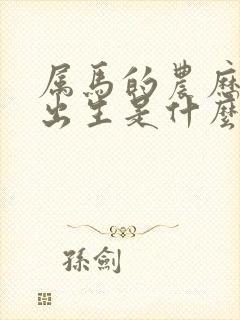 属馬的農历
出生是什麼
孫劍